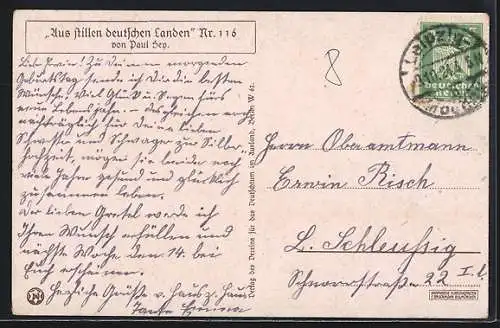 „Aus stillen deutschen Landen" Nr. 116
von Paul Hey.
8
Lieber Erwin! Zu Deinem morgenden
Geburtstag sende ich Dir die besten
Wünsche. Viel Glück u. Segen fürs
neue Lebensjahr. desgleichen
nachträglich für Deine lieben
Schwester und Schwager zur Silber-
hochzeit, mögen sie beide noch
viele Jahre gesund und glücklich
zusammen leben.
Der lieben Gretel werde ich
Ihren Wunsch erfüllen und
nächste Woche den 14. bei
Euch erscheinen.
Herzliche Grüße v. Haus z. Haus
Tante Emma
Verlag des Vereins für das Deutschtum im Ausland, Berlin W 62.
LEIPZIG
DEUTSCHES
REICH
Herrn Oberamtmann
Erwin Risch
L. Schleußig
Schnorrstraße 22 I. l.